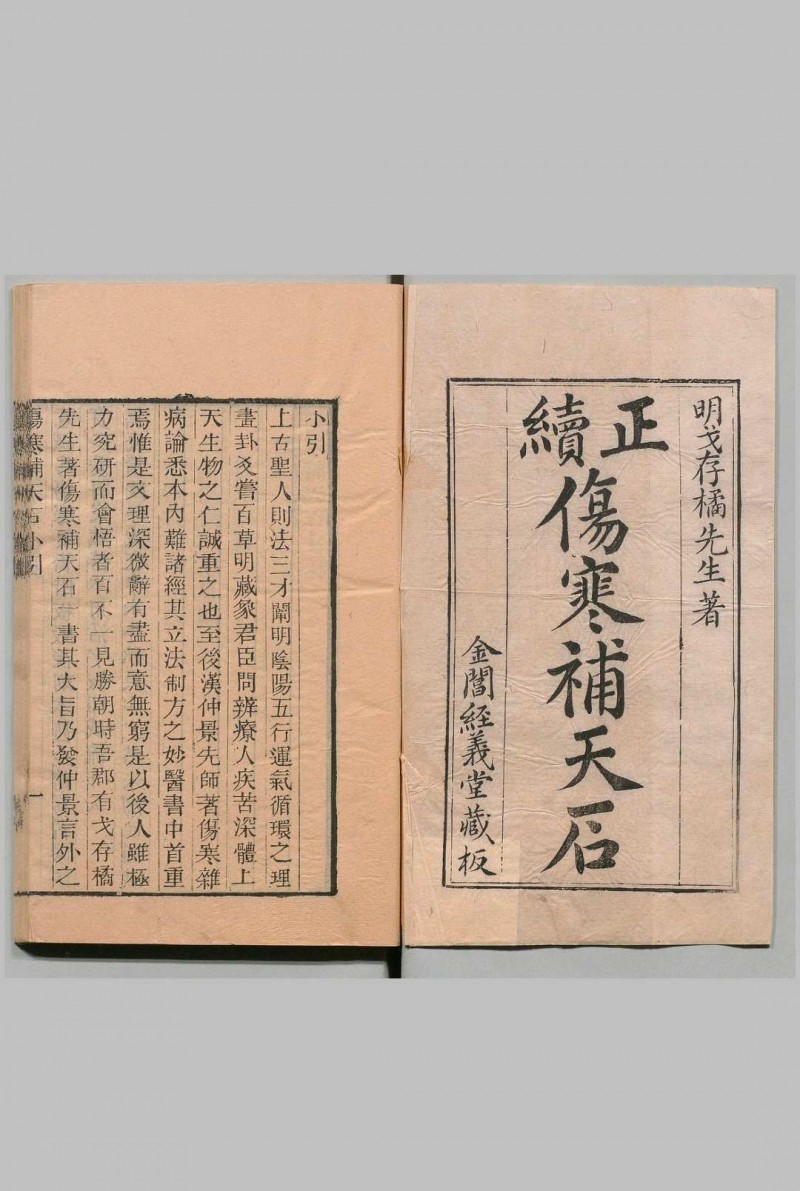 明戈存橘先生著
正續
傷寒補天石
金閶經義堂藏板
小引
上古聖人則法三才闡明陰陽五行運氣循環之理
畫卦爻嘗百草明藏象君臣問辨療人疾苦深體上
天生物之仁誠重之也至後漢仲景先師著傷寒雜
病論悉本內難諸經其立法制方之妙醫書中首重
焉惟是文理深微辭有盡而意無窮是以後人雖極
力究研而會悟者百不一見勝朝時吾郡有戈存橘
先生著傷寒補天石一書其大旨乃發仲景言外之
傷寒補天石小引
一